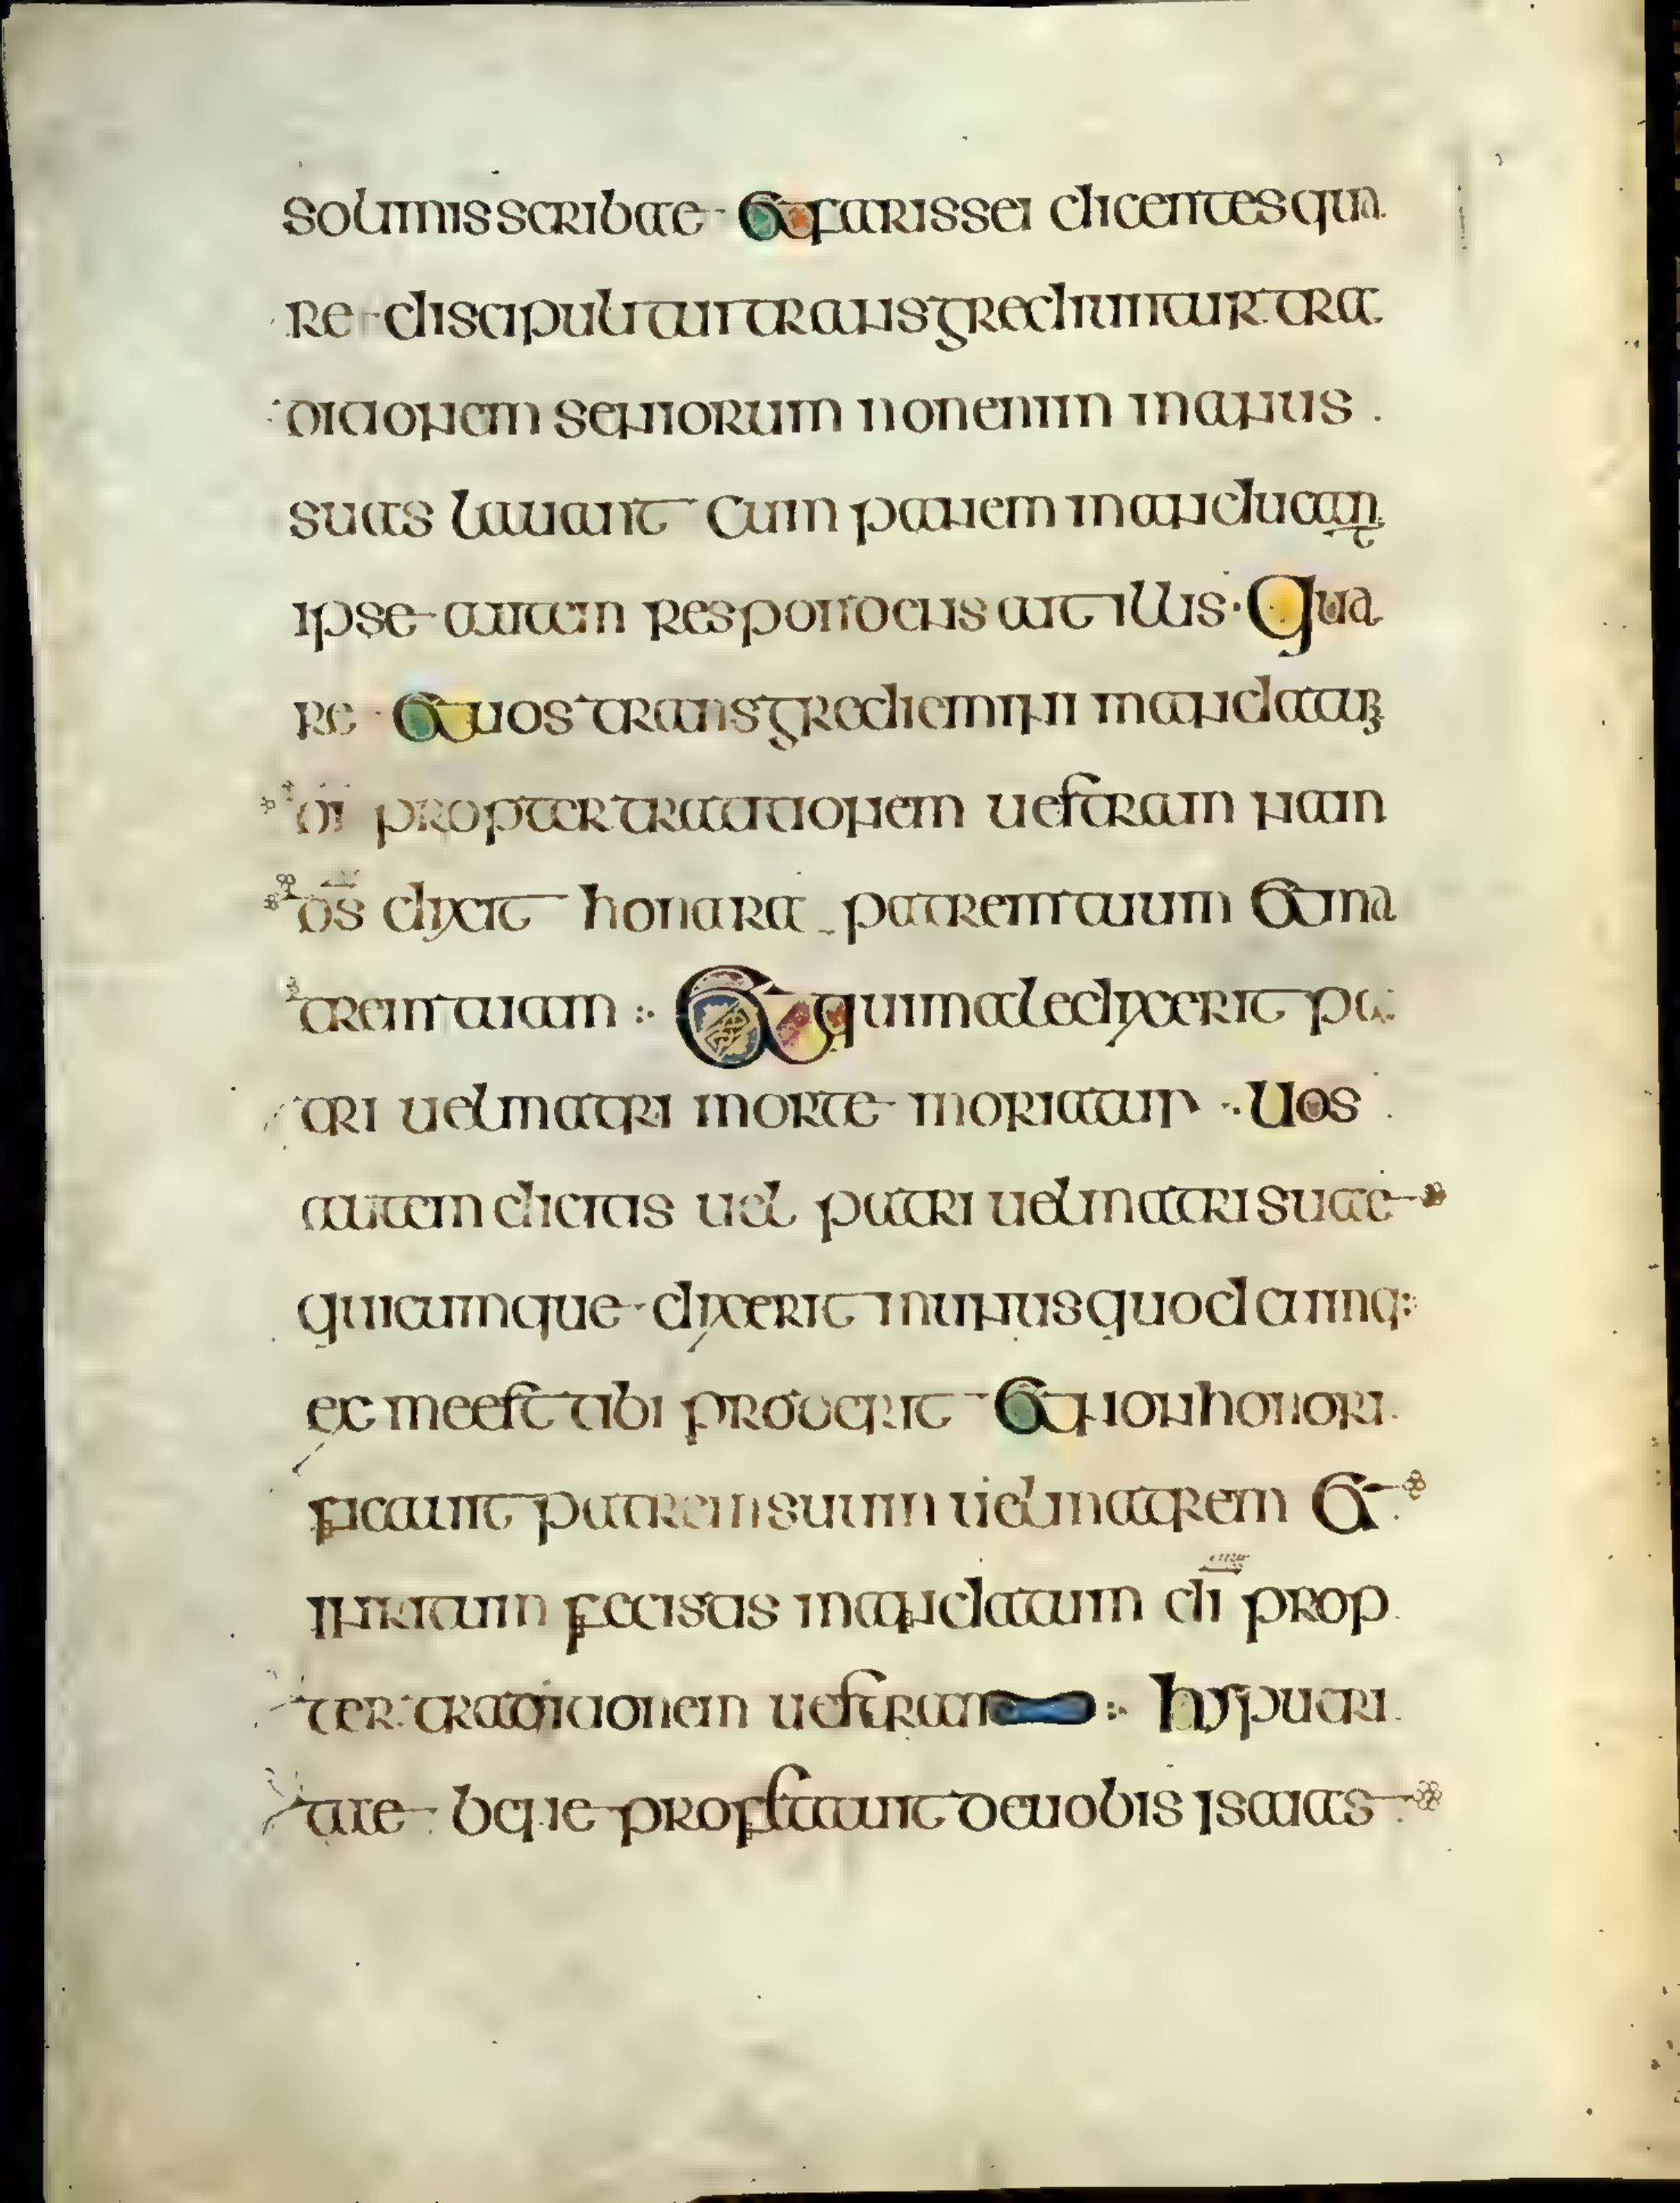 solimis scribae et farissei dicentes qua
re discipuli tui transgrediuntur tra
ditionem seniorum non enim manus
suas lavant cum panem manducant
ipse autem respondens ait illis · Qua
re et uos transgrediemini mandatum
dī propter traditionem uestram nam
ds̄ dixit honora patrem tuum et ma
trem tuam :· Et qui maledixerit pa
tri uel matri morte moriatur ·:· Uos
autem dicitis uel patri uel matri suae
quicumque dixerit munus quodcumq:
ex me est tibi proderit et non honori
ficauit patrem suum uel matrem et
irritum fecistis mandatum dī prop
ter traditionem uestram :· hypocri
tae bene profetauit de uobis isaias